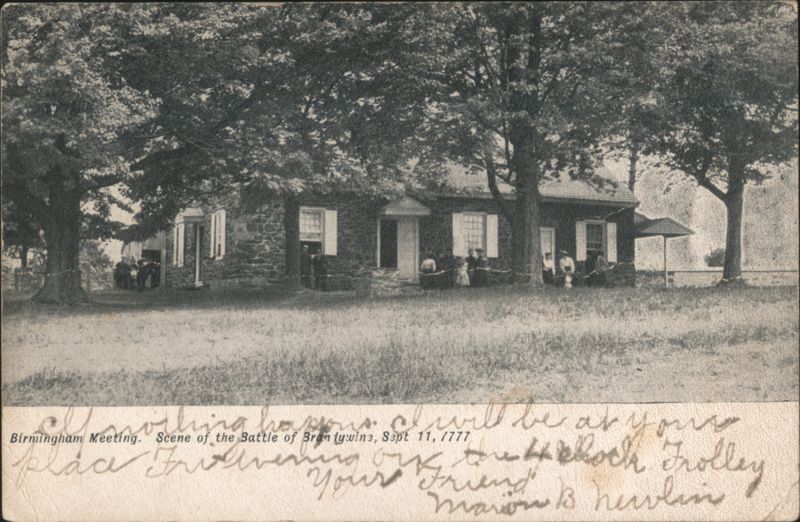 If nothing happens I will be at your
Birmingham Meeting. Scene of the Battle of Brandywine, Sept 11, 1777
place Fri evening on the 4 o'clock Trolley
Your Friend
Marion B Newlin